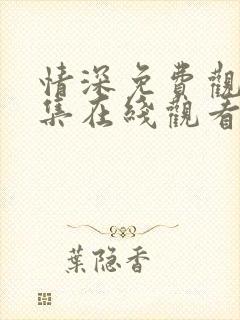 情深免費觀
集在綫觀看
葉隐香